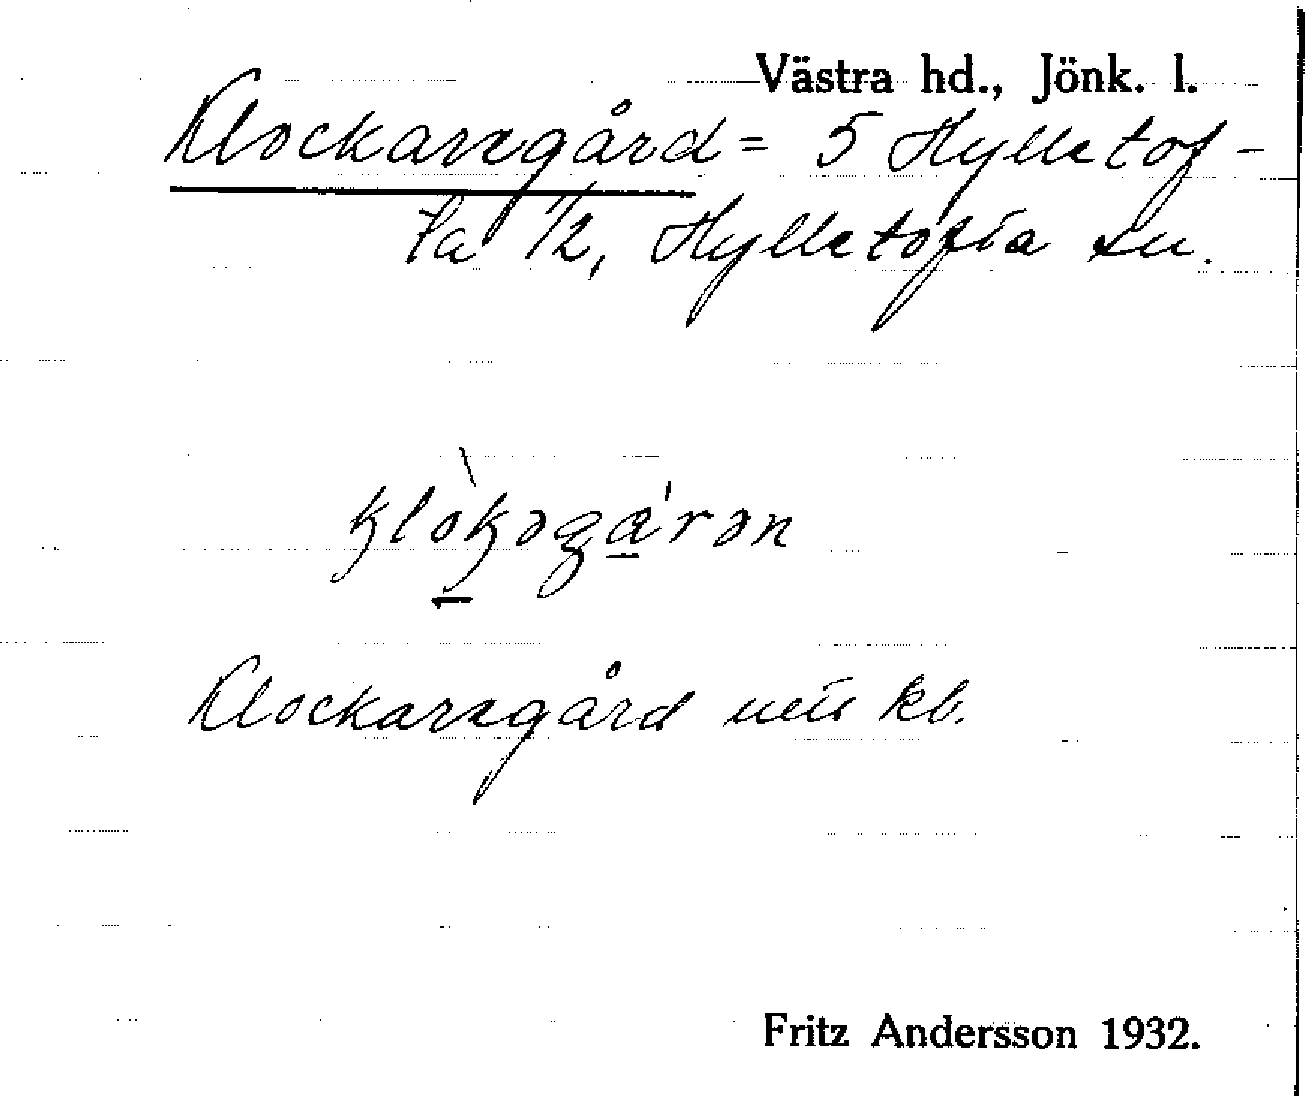 Västra hd., Jönk. l.
Klockaregård = 5 Hylletof-
ta 1/2, Hylletofta sn.
klòkəga'rən
Klockaregård utt. kb.
Fritz Andersson 1932.